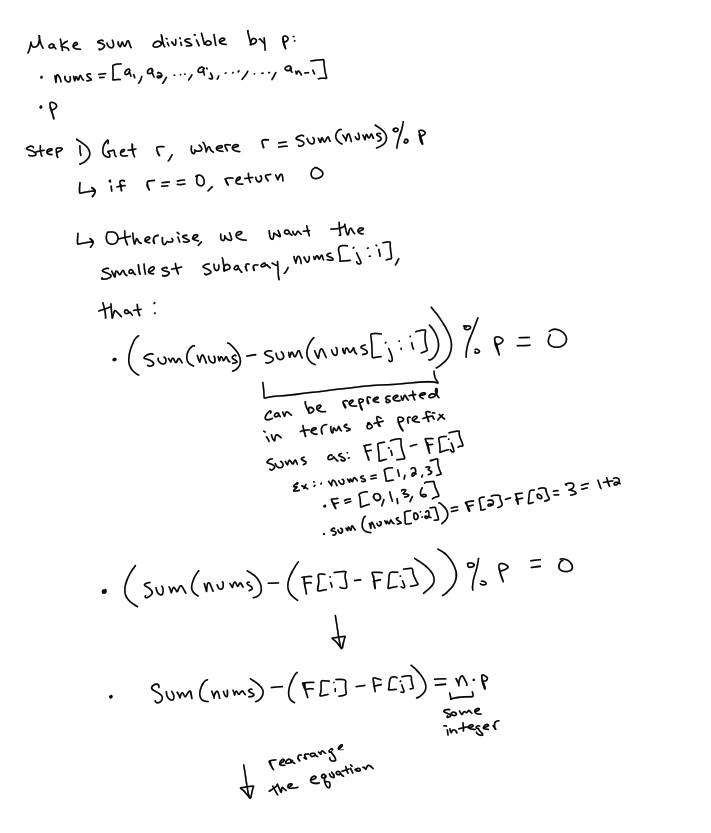 Make sum divisible by p:
• nums = [a₁, a₂, ..., aⱼ, ..., ..., aₙ₋₁]
• p
Step 1) Get r, where r = sum(nums) % p
↳ if r == 0, return 0
↳ Otherwise, we want the
smallest subarray, nums[j:i],
that:
• (sum(nums) - sum(nums[j:i])) % p = 0
can be represented
in terms of prefix
sums as: F[i] - F[j]
Ex: • nums = [1,2,3]
• F = [0,1,3,6]
• sum(nums[0:2]) = F[2] - F[0] = 3 = 1+2
• (sum(nums) - (F[i] - F[j])) % p = 0
↓
• Sum(nums) - (F[i] - F[j]) = n·p
some
integer
↓ rearrange
the equation